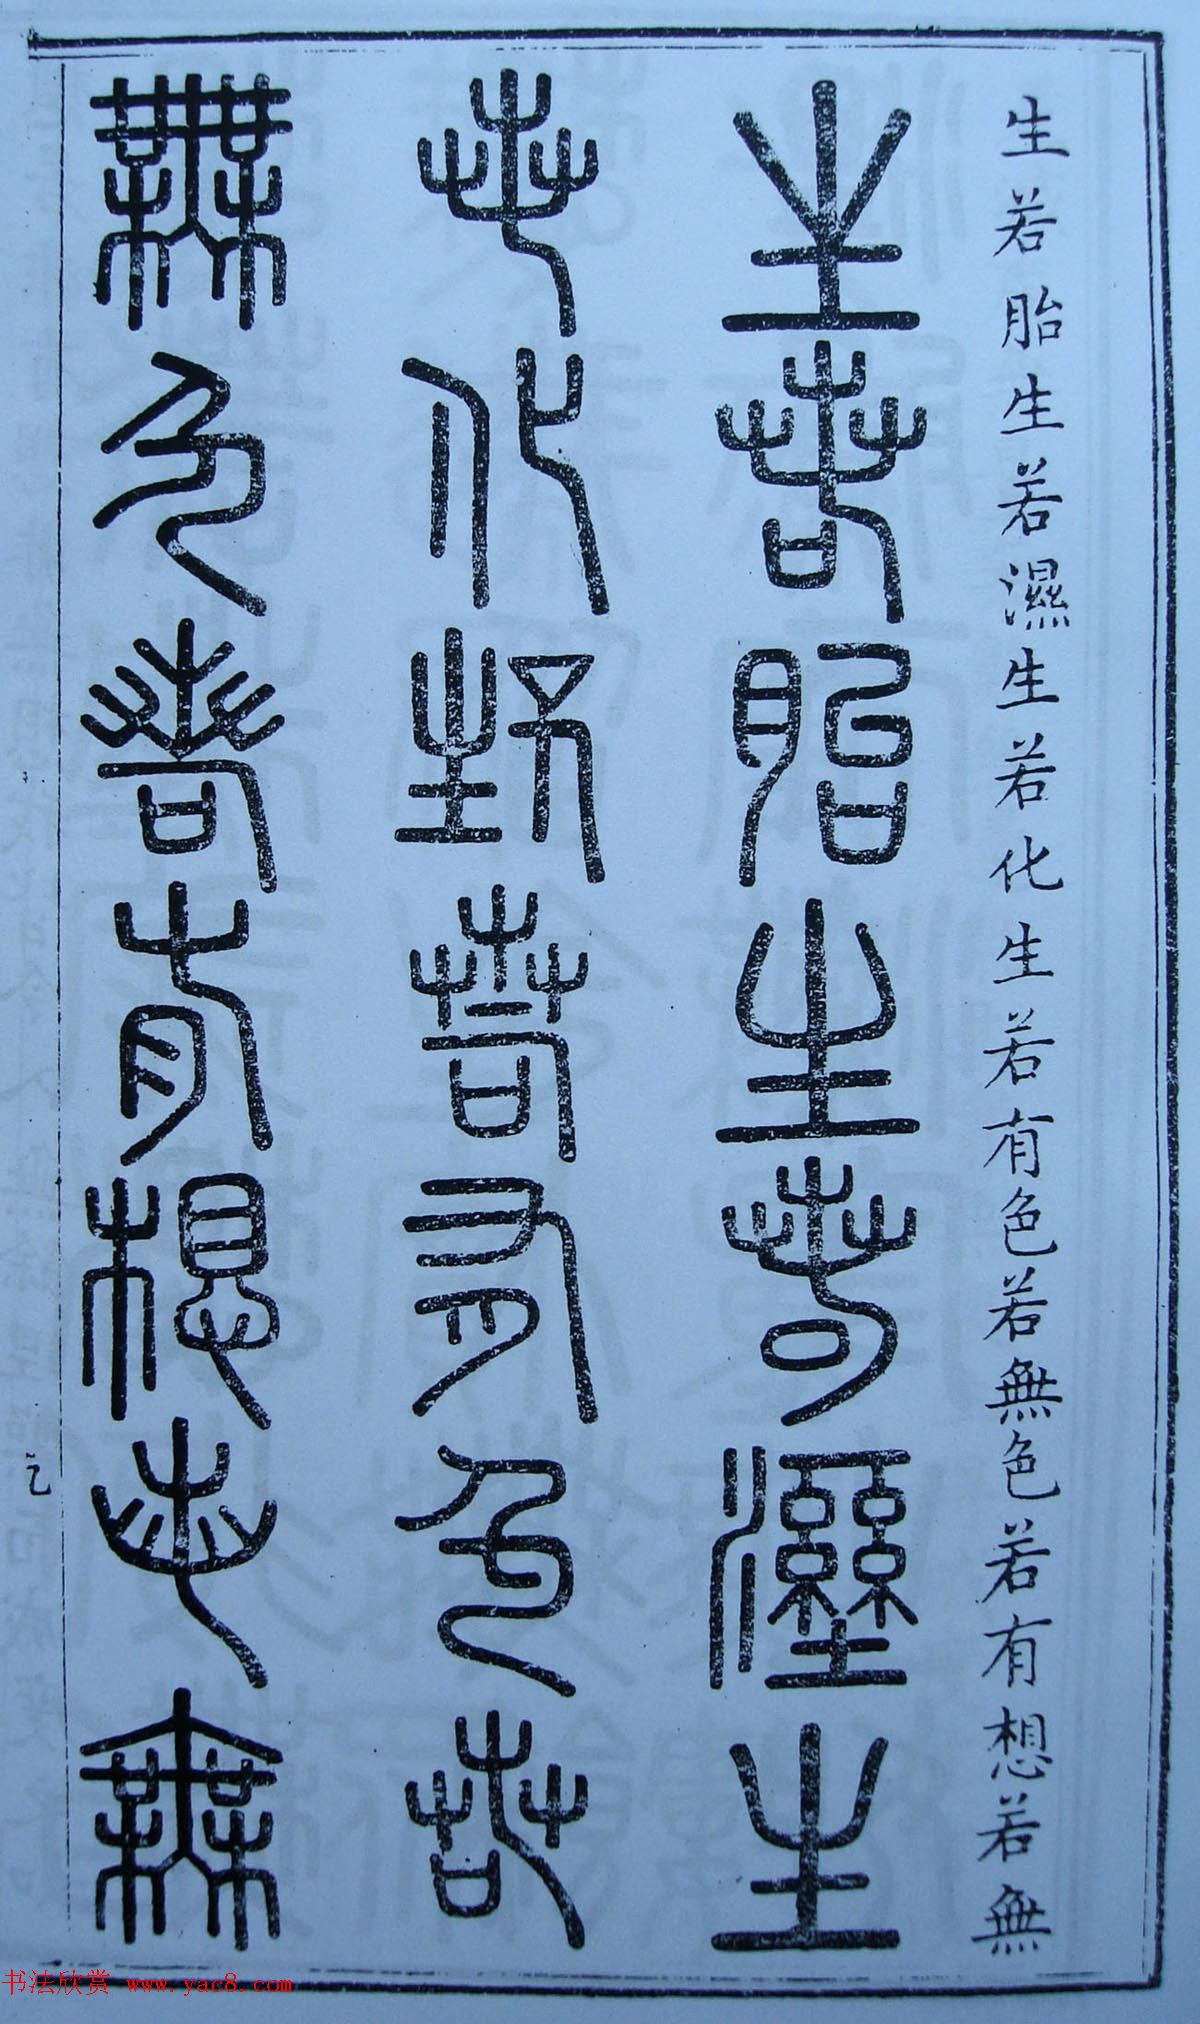 生若胎生若濕生若化生若有色若無色若有想若無
生若胎生若溼生
若化生若有色若
無色若有想若無
书法欣赏 www.yac8.com